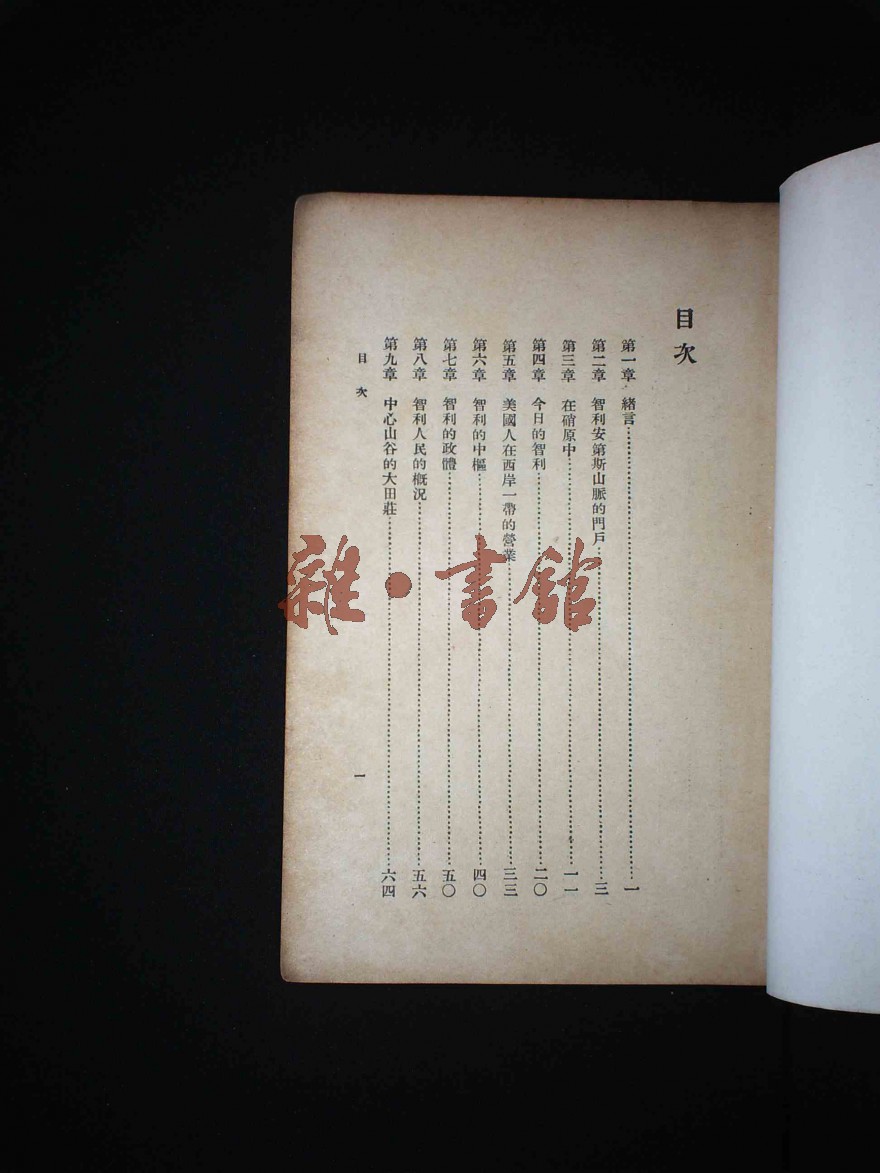 目次
第一章 緒言…………一
第二章 智利安第斯山脈的門戶…………三
第三章 在硝原中…………一一
第四章 今日的智利…………二〇
第五章 美國人在西岸一帶的營業…………三三
第六章 智利的中樞…………四〇
第七章 智利的政體…………五〇
第八章 智利人民的概況…………五六
第九章 中心山谷的大田莊…………六四
目次
一
雜·書館